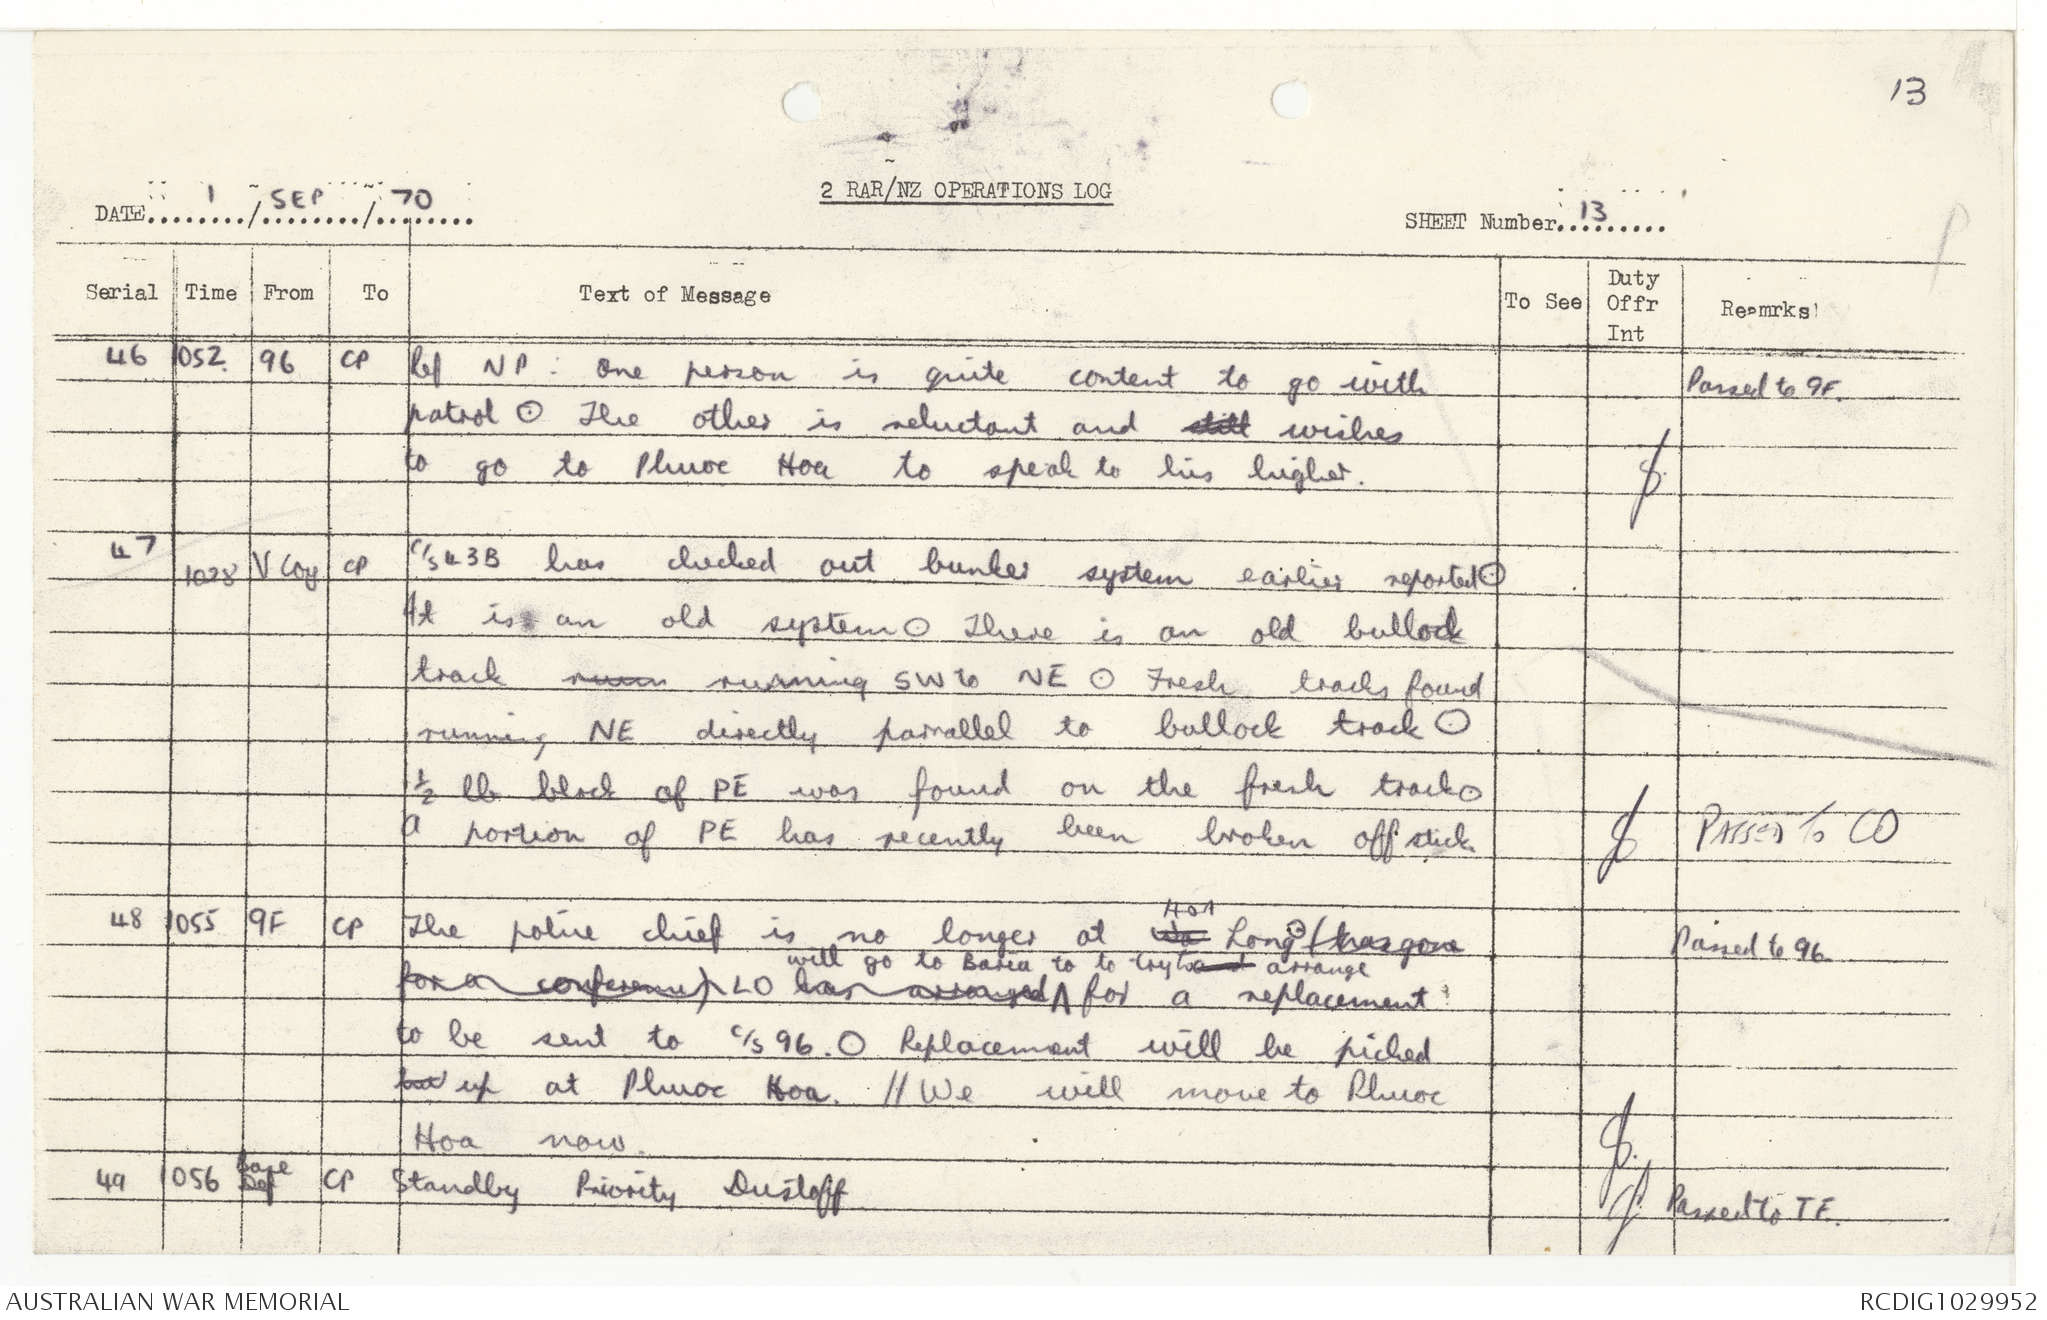 13
DATE 1 / SEP / 70
2 RAR/NZ OPERATIONS LOG
SHEET Number 13
Serial Time From To Text of Message To See Duty Offr Int Remrks
46 1052 96 CP Ref NP: One person is quite content to go with Passed to 9F.
patrol ⊙ The other is reluctant and still wishes
to go to Phuoc Hoa to speak to his higher.
47 1028 V Coy CP C/S 43B has checked out bunker system earlier reported ⊙
It is an old system ⊙ There is an old bullock
track runn running SW to NE ⊙ Fresh tracks found
running NE directly parrallel to bullock track ⊙
1/2 lb block of PE was found on the fresh track ⊙
A portion of PE has recently been broken off stick PASSED to CO
HOA
48 1055 9F CP The police chief is no longer at Long ⊙ (has gone Passed to 96.
will go to Baria to to try arrange
for a conference) LO has arranged ∧ for a replacement
to be sent to C/S 96. ⊙ Replacement will be picked
up at Phuoc Hoa. // We will move to Phuoc
Hoa now.
49 1056 Base Def CP Standby Priority Dustoff Passed to TF.
AUSTRALIAN WAR MEMORIAL RCDIG1029952